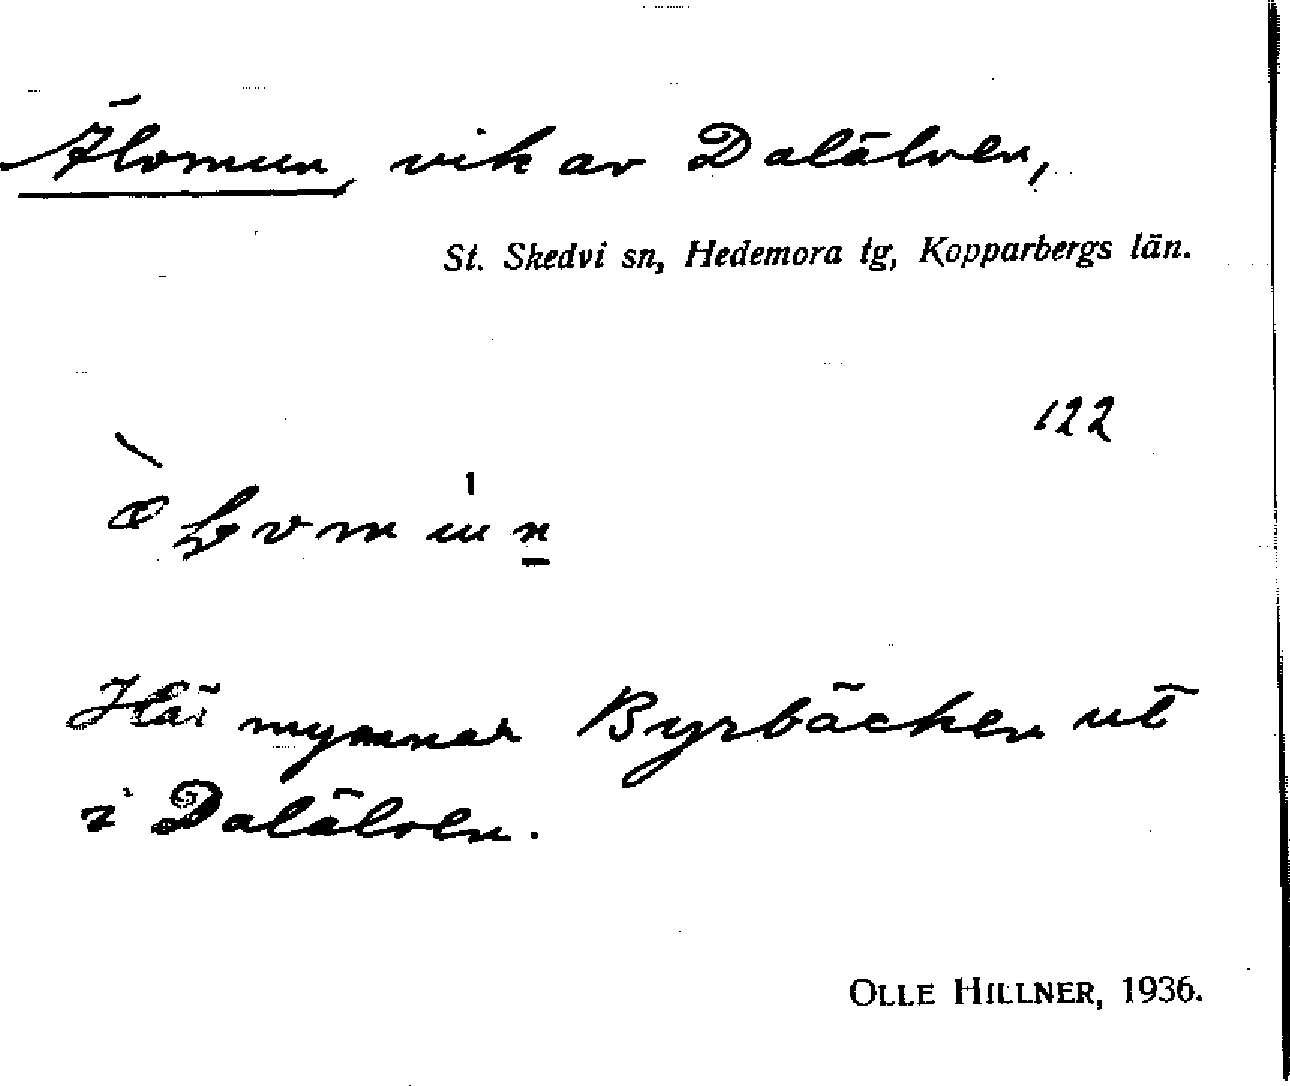 Älvmun, vik av Dalälven,
St. Skedvi sn, Hedemora tg, Kopparbergs län.
122
Här mynnar Byrbäcken ut
i Dalälven.
OLLE HILLNER, 1936.